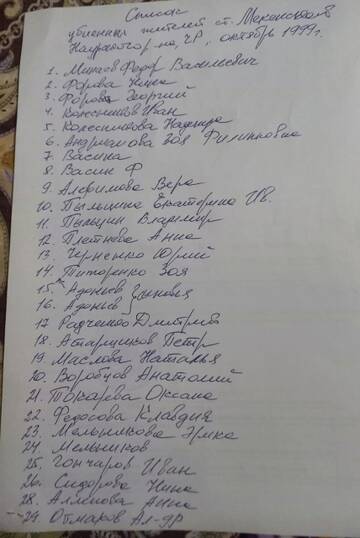 Список
убиенных жителей ст. Мекенской
Наурского р-на, ЧР, октябрь 1999г.
1. Минаев Федор Васильевич
2. Форова Нина
3. Форова Георгий
4. Колесников Иван
5. Колесникова Надежда
6. Андрианова Зоя Филипповна
7. Васина
8. Васин Ф
9. Алфимова Вера
10. Пыльцина Екатерина Ив.
11. Пыльцин Владимир
12. Плетнева Анна
13. Черненко Юрий
14. Титоренко Зоя
15. Адоньев } сыновья
16. Адоньев
17. Радченко Дмитрий
18. Астарщиков Петр
19. Маслова Наталья
20. Воробцов Анатолий
21. Токарева Оксана
22. Федосова Клавдия
23. Мельникова Эмма
24. Мельников
25. Гончаров Иван
26. Сидорова Нина
28. Анна
29. Отмаров Ал-др